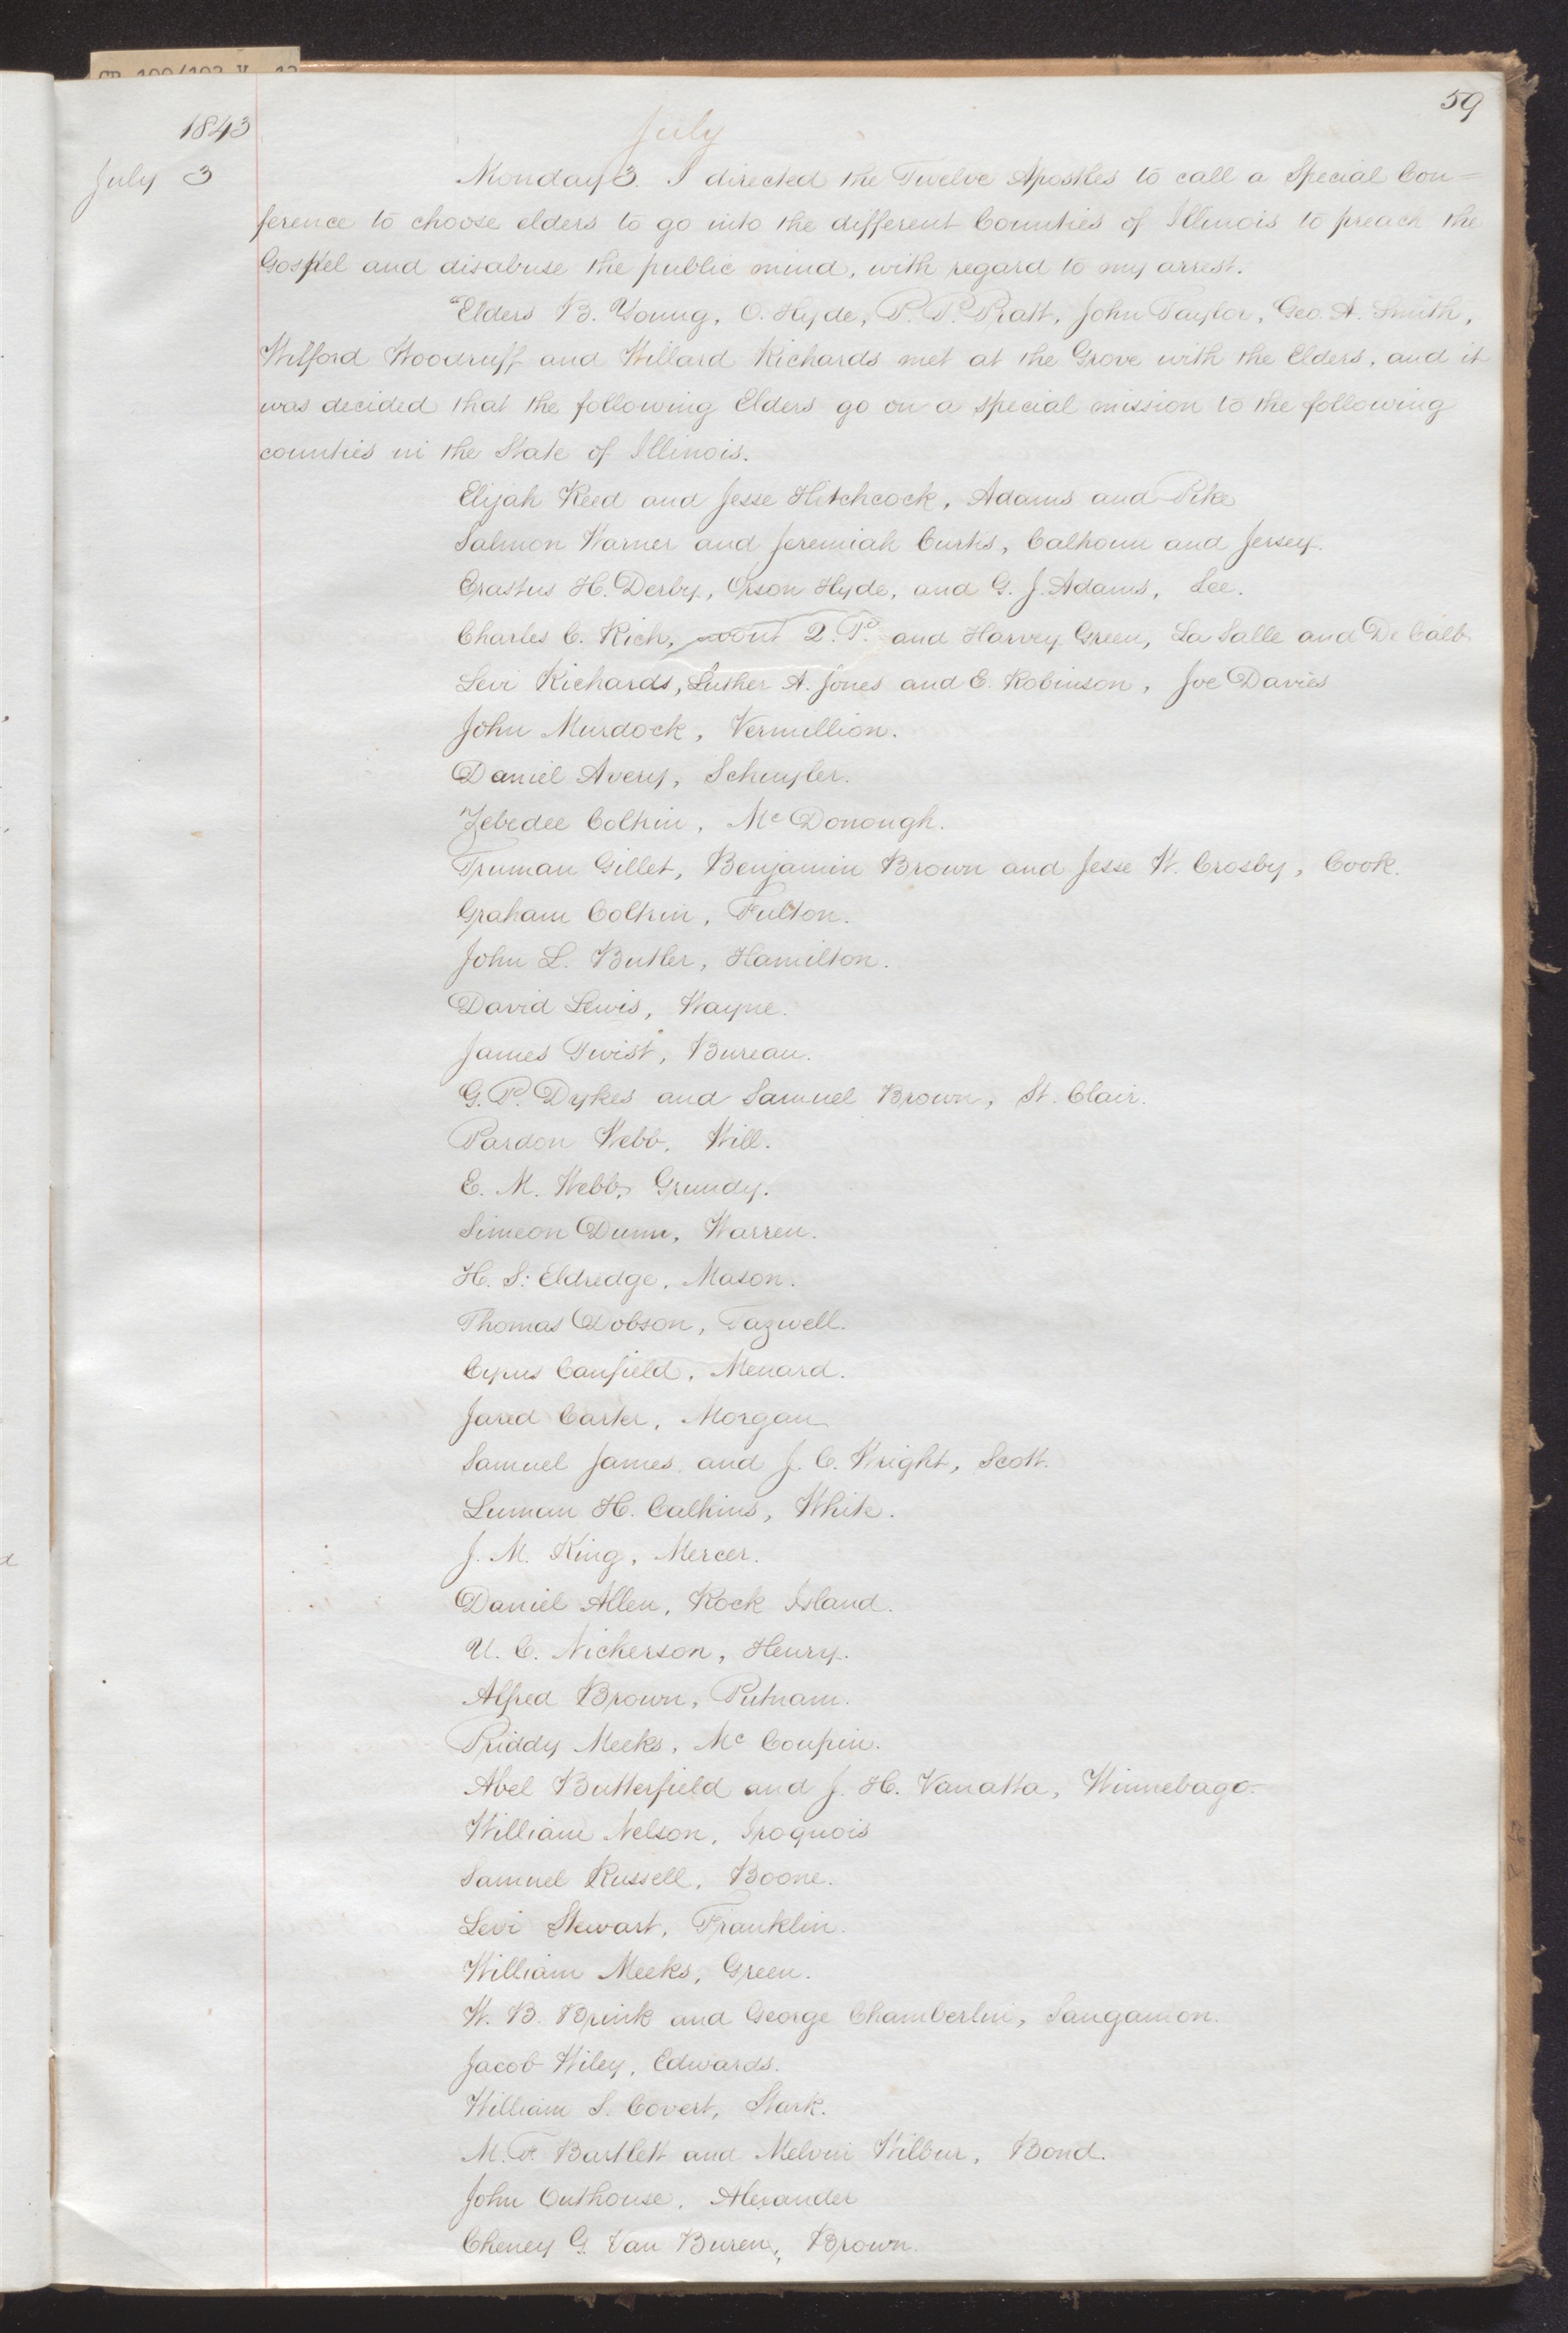 59
1843
July
July 3
Monday 3. I directed the Twelve Apostles to call a Special Con=
ference to choose elders to go into the different Counties of Illinois to preach the
Gospel and disabuse the public mind, with regard to my arrest.
Elders B. Young, O. Hyde, P. P. Pratt, John Taylor, Geo. A. Smith,
Wilford Woodruff and Willard Richards met at the Grove with the Elders, and it
was decided that the following Elders go on a special mission to the following
counties in the State of Illinois.
Elijah Reed and Jesse Hitchcock, Adams and Pike
Salmon Warner and Jeremiah Curtis, Calhoun and Jersey.
Erastus H. Derby, Orson Hyde, and G. J. Adams, Lee.
Charles C. Rich, 2. P. and Harvey Green, La Salle and De Calb
Levi Richards, Luther A. Jones and E. Robinson, Joe Davies
John Murdock, Vermillion.
Daniel Avery, Schuyler.
Zebedee Coltrin, Mc Donough.
Truman Gillet, Benjamin Brown and Jesse W. Crosby, Cook.
Graham Coltrin, Fulton.
John L. Butler, Hamilton.
David Lewis, Wayne.
James Twist, Bureau.
G. P. Dykes and Samuel Brown, St. Clair.
Pardon Webb, Will.
E. M. Webb, Grundy.
Simeon Dunn, Warren.
H. S. Eldredge, Mason.
Thomas Dobson, Tazwell.
Cyrus Canfield, Menard.
Jared Carter, Morgan
Samuel James and J. C. Wright, Scott.
Luman H. Calkins, White.
J. M. King, Mercer.
Daniel Allen, Rock Island.
U. C. Nickerson, Henry.
Alfred Brown, Putnam.
Priddy Meeks, Mc Coupin.
Abel Butterfield and J. H. Vanatta, Winnebago.
William Nelson, Iroquois
Samuel Russell, Boone.
Levi Stewart, Franklin.
William Meeks, Green.
W. B. Brink and George Chamberlin, Sangamon.
Jacob Wiley, Edwards.
William S. Covert, Stark.
M. F. Bartlett and Melvin Wilbur, Bond.
John Outhouse, Alexander
Cheney G. Van Buren, Brown.